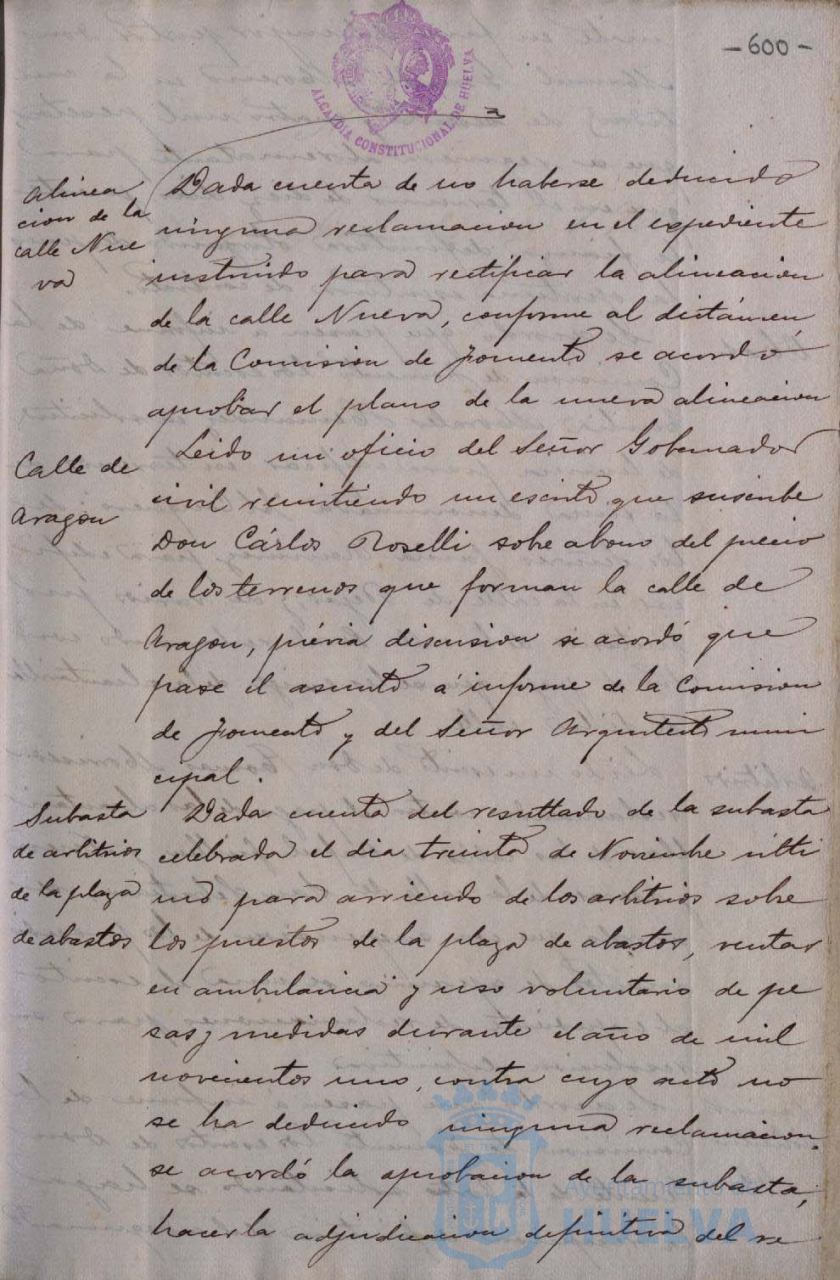 - 600 -
ALCALDIA CONSTITUCIONAL DE HUELVA
Alinea
cion de la
calle Nue
va
Dada cuenta de no haberse deducido
ninguna reclamacion en el expediente
instruido para rectificar la alineacion
de la calle Nueva, conforme al dictámen
de la Comision de Fomento se acordó
aprobar el plano de la nueva alineacion
Calle de
Aragon
Leido un oficio del Señor Gobernador
civil remitiendo un escrito que suscribe
Don Cárlos Roselli sobre abono del precio
de los terrenos que forman la calle de
Aragon, prévia discusion se acordó que
pase el asunto á informe de la Comision
de Fomento y del Señor Arquitecto muni
cipal.
Subasta
de arbitrios
de la plaza
de abastos
Dada cuenta del resultado de la subasta
celebrada el dia treinta de Noviembre últi
mo para arriendo de los arbitrios sobre
los puestos de la plaza de abastos, ventas
en ambulancia y uso voluntario de pe
sas y medidas durante el año de mil
novecientos uno, contra cuyo acto no
se ha deducido ninguna reclamacion.
se acordó la aprobacion de la subasta,
hacer la adjudicacion definitiva del re
Ayuntamiento de
HUELVA